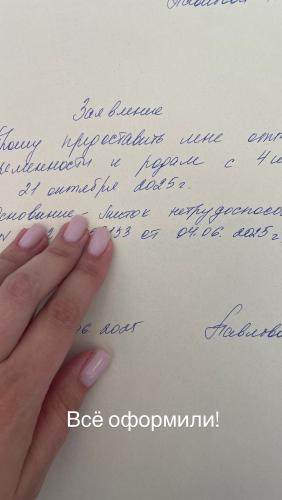 Заявление
Прошу предоставить мне отп
ременности и родам с 4 и
21 октября 2025 г.
Основание - листок нетрудоспосо
153 от 04.06.2025 г
06 2025 Павлова
Всё оформили!